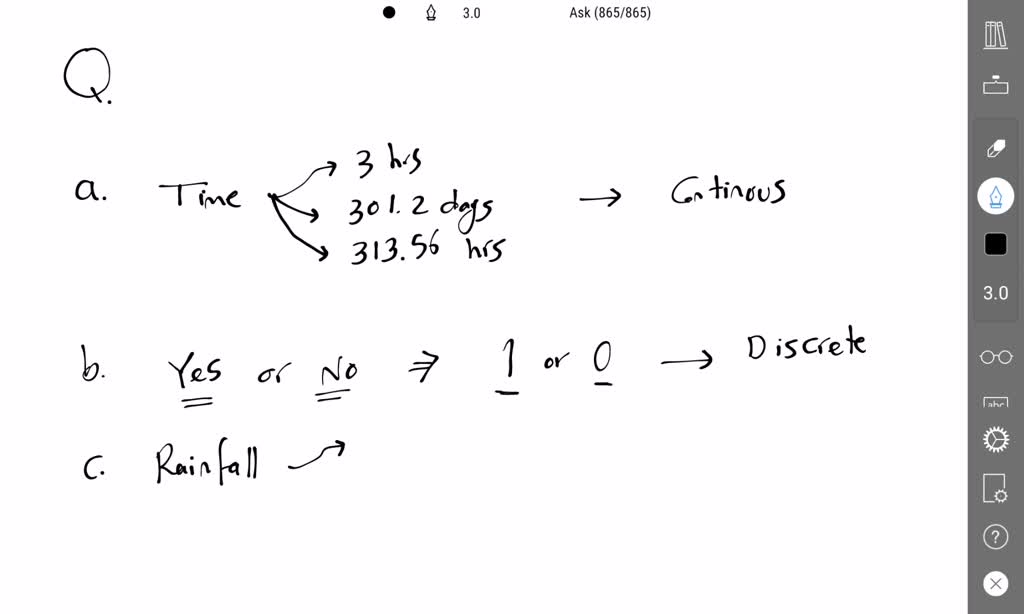 3.0 Ask (865/865)
Q.
a. Time → 3 hrs
301.2 days → Continous
313.56 hrs
3.0
b. Yes or No ⇒ 1 or 0 → Discrete
abc
c. Rainfall →
?